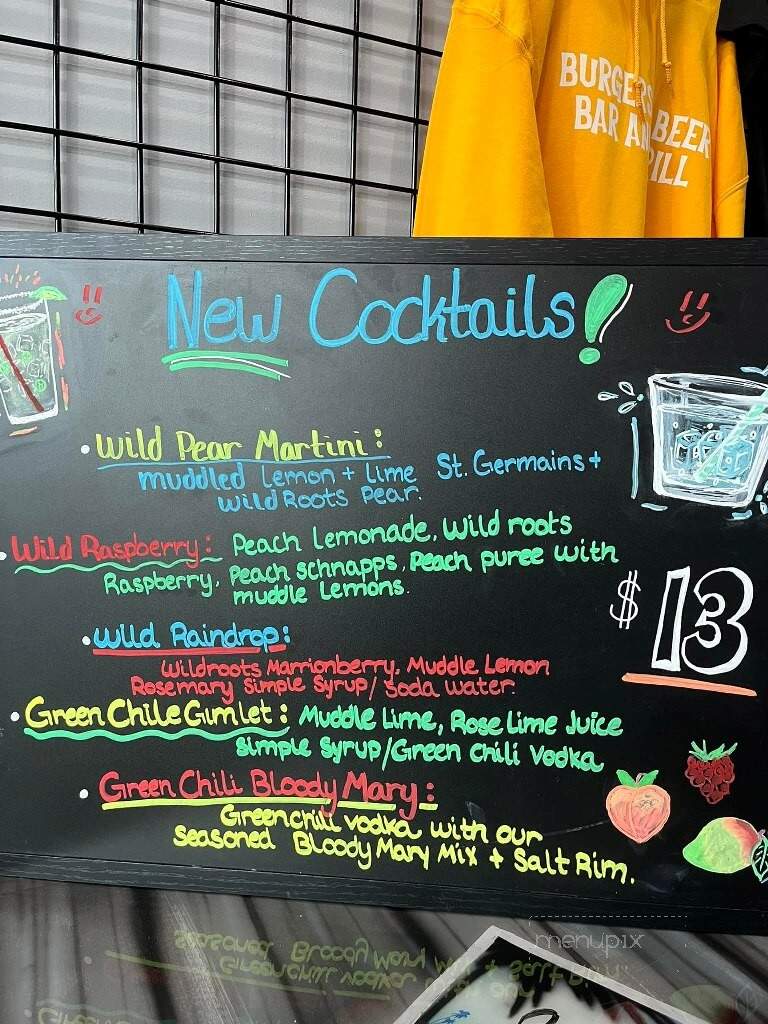 BURGERS
BAR AN BEER
RILL
New Cocktails!
• Wild Pear Martini:
muddled Lemon + Lime St. Germains +
Wild Roots Pear.
• Wild Raspberry: Peach Lemonade, Wild roots
Raspberry, Peach schnapps, Peach puree with
muddle Lemons.
$13
• Wild Raindrop:
Wildroots Marrionberry, Muddle Lemon
Rosemary Simple Syrup/soda water
• Green Chile Gumlet: Muddle Lime, Rose Lime Juice
Simple Syrup/Green Chili Vodka
• Green Chili Bloody Mary:
Greenchili vodka with our
Seasoned Bloody Mary Mix + Salt Rim.
menupix